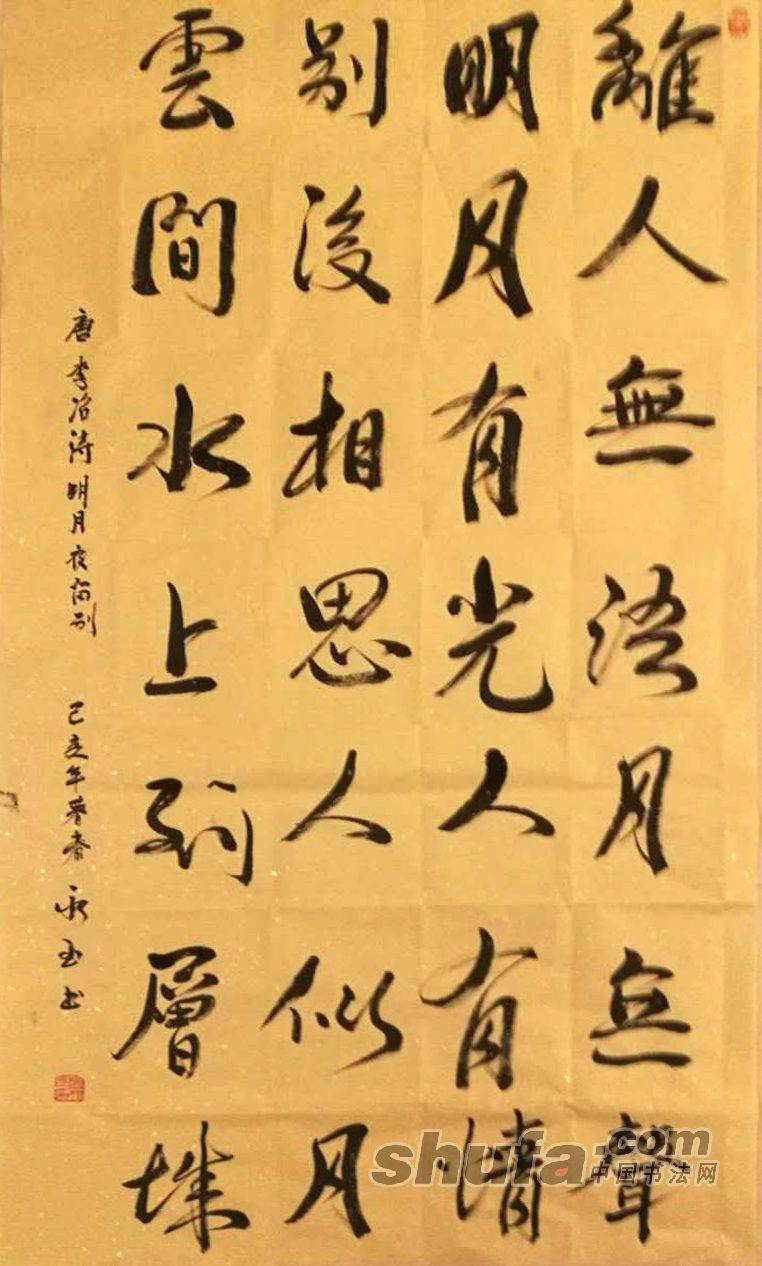 離人無語月無聲
明月有光人有情
别後相思人似月
雲間水上到層城
唐李冶詩明月夜留别
己亥年暮春 永玉书
shufa.com
中国书法网